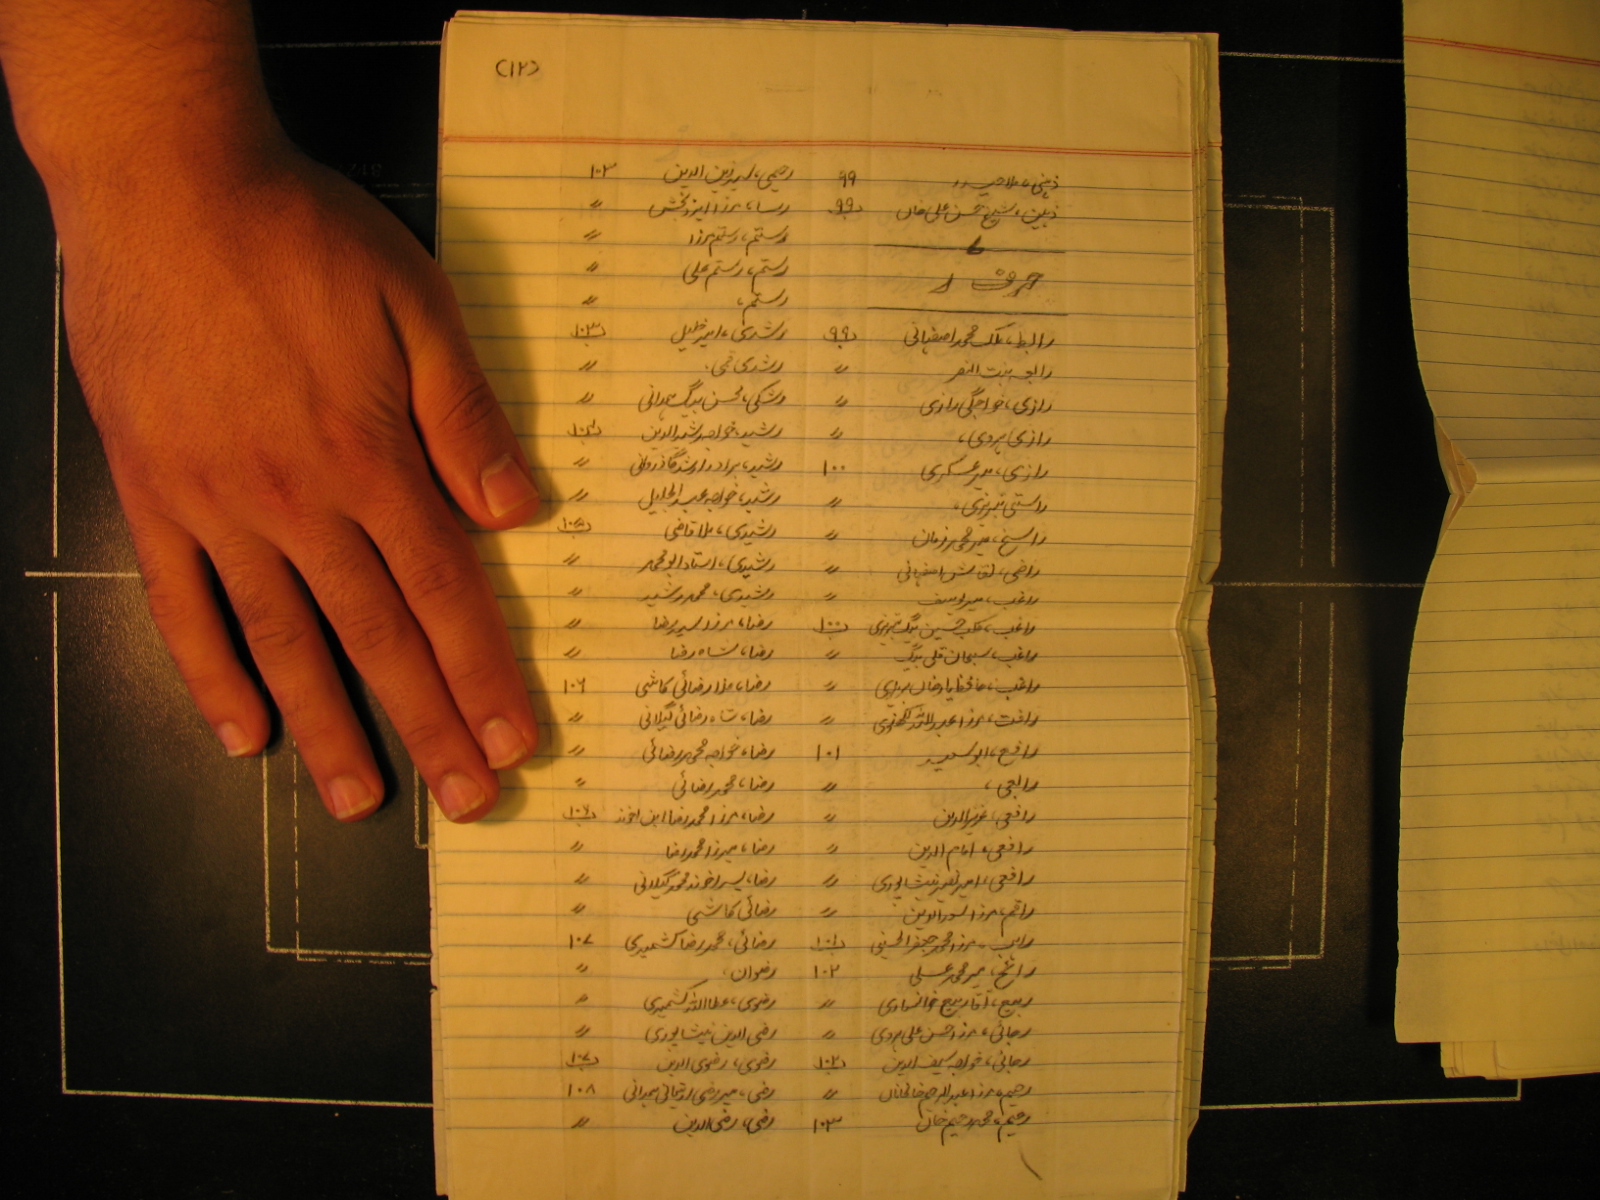 (۱۲)
ذہنی، ملا حیدر ۹۹
ذہین، شیخ محسن علی خان ۹۹ب
حرف ر
رابط، ملک محمد اصفہانی ۹۹ب
رابعہ بنت النصر 〃
رازی، خواجگی رازی 〃
رازی ہروی، 〃
رازی، میر عسکری ۱۰۰
راستی تبریزی، 〃
راسخ، میر محمد زمان 〃
راضی، اصفہانی 〃
راغب، میر یوسف 〃
راغب، کلب حسین بیگ تبریزی ۱۰۰ب
راغب، سبحان قلی بیگ 〃
راغب، حافظ یار خان 〃
رافت، مرزا عبداللہ 〃
رافع، ابو سعید ۱۰۱
رافعی، 〃
رافعی، عزیز الدین 〃
رافعی، امام الدین 〃
رافعی، امیر نیشاپوری 〃
راقم، مرزا سعد الدین 〃
راہب، مرزا محمد جعفر الحسینی ۱۰۱ب
رائج، میر محمد علی ۱۰۲
ربیع، آقا ربیع خوانساری 〃
رجائی، مرزا حسن علی ہروی 〃
رجائی، خواجہ سیف الدین ۱۰۲ب
رحیم، مرزا عبدالرحیم خانخاناں 〃
رحیم، محمد رحیم خان ۱۰۳
رحیمی، زین الدین ۱۰۳
رسا، مرزا ایزد بخش 〃
رستم، رستم مرزا 〃
رستم، رستم علی 〃
رستم، 〃
رشدی، امیر خلیل ۱۰۳ب
رشدی قمی، 〃
رشکی، محسن بیگ ہمدانی 〃
رشید، خواجہ رشید الدین
رشید، برادر ارشد گاذرونی 〃
رشید، خواجہ عبد الجلیل 〃
رشیدی، ملا قاضی
رشیدی، استاد ابو محمد 〃
رشیدی، محمد رشید 〃
رضا، مرزا سید رضا 〃
رضا، شاہ رضا 〃
رضا، رضائی کاشی ۱۰۶
رضا، شاہ رضائی گیلانی 〃
رضا، خواجہ محمد رضائی 〃
رضا، محمد رضائی 〃
رضا، مرزا محمد رضا ابن اخوند ۱۰۶ب
رضا، میرزا محمد رضا 〃
رضا، پسر اخوند محمد گیلانی 〃
رضائی کاشی 〃
رضائی، محمد رضا کشمیری ۱۰۷
رضوان، 〃
رضوی، عطا اللہ کشمیری 〃
رضی الدین نیشاپوری 〃
رضوی، رضوی الدین ۱۰۷ب
رضی، میر رضی ارتیمانی ہمدانی ۱۰۸
رضی، رضی الدین 〃